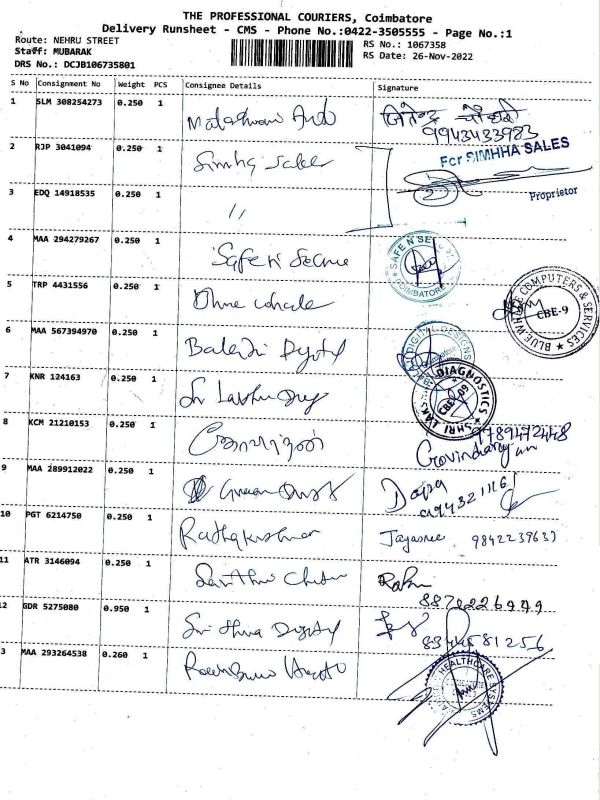 THE PROFESSIONAL COURIERS, Coimbatore
Delivery Runsheet - CMS - Phone No.:0422-3505555 - Page No.:1
Route: NEHRU STREET
Staff: MUBARAK
DRS No.: DCJB106735801
RS No.: 1067358
RS Date: 26-Nov-2022
S No Consignment No Weight PCS Consignee Details Signature
1 SLM 308254273 0.250 1
9943433983
2 RJP 3041094 0.250 1 Simhq Sales
For SIMHHA SALES
Proprietor
3 EDQ 14918535 0.250 1 "
4 MAA 294279267 0.250 1 Safe n Secure
SAFE N SE
COIMBATORE
5 TRP 4431556 0.250 1 Blue whale
BLUE WHALE COMPUTERS & SERVICES
CBE-9
6 MAA 567394970 0.250 1 Balaji Digital
BALAJI DIGITAL DESIGNS
7 KNR 124163 0.250 1 Sri Lakshmi
SHRI LAKS DIAGNOSTICS
CBE-09
8 KCM 21210153 0.250 1
9789472448
Govindarajan
9 MAA 289912022 0.250 1 Green
10 PGT 6214750 0.250 1 Radhakrishnan
Jayasree 9842239637
11 ATR 3146094 0.250 1
8870226949
12 GDR 5275080 0.950 1 Sri Digital
8344581256
3 MAA 293264538 0.260 1
HEALTHCARE SYSTEMS